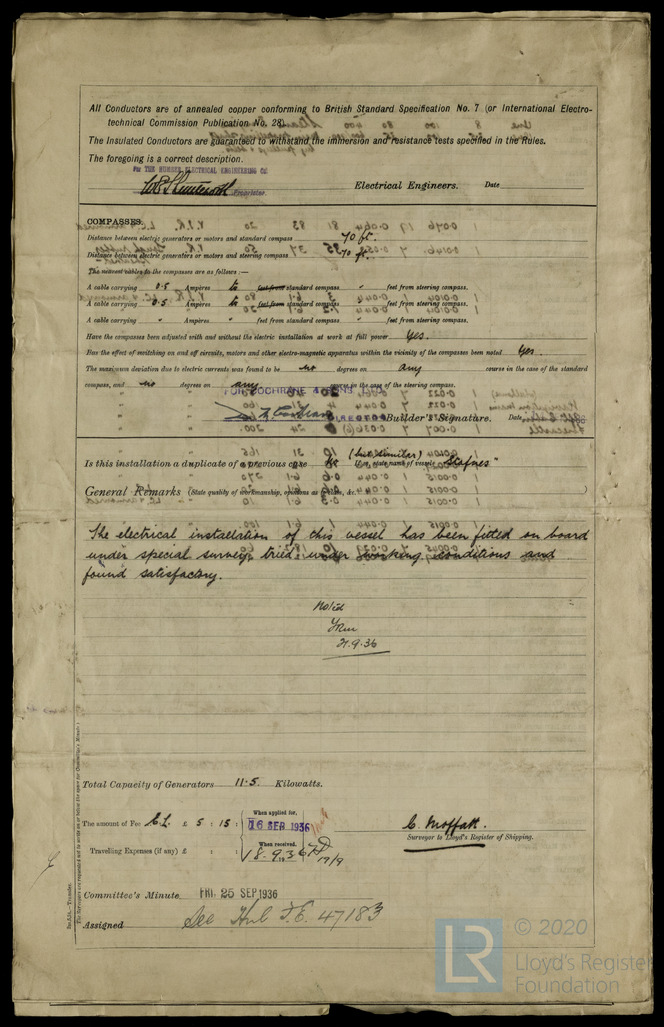 All Conductors are of annealed copper conforming to British Standard Specification No. 7 (or International Electro-
technical Commission Publication No. 28).
The Insulated Conductors are guaranteed to withstand the immersion and resistance tests specified in the Rules.
The foregoing is a correct description.
For THE HUMBER ELECTRICAL ENGINEERING Co.
Proprietor.
Electrical Engineers. Date
COMPASSES.
Distance between electric generators or motors and standard compass 70 ft.
Distance between electric generators or motors and steering compass 70 ft.
The nearest cables to the compasses are as follows :—
A cable carrying 0.5 Ampères to feet from standard compass " feet from steering compass.
A cable carrying 0.5 Ampères to feet from standard compass " feet from steering compass.
A cable carrying " Ampères " feet from standard compass " feet from steering compass.
Have the compasses been adjusted with and without the electric installation at work at full power Yes.
Has the effect of switching on and off circuits, motors and other electro-magnetic apparatus within the vicinity of the compasses been noted Yes.
The maximum deviation due to electric currents was found to be no degrees on any course in the case of the standard
compass, and no degrees on any course in the case of the steering compass.
FOR COCHRANE & SONS LTD
DIRECTOR Builder's Signature. Date
Is this installation a duplicate of a previous case No (but similar) If so, state name of vessel "Stafnes"
General Remarks (State quality of workmanship, opinions as to class, &c.)
The electrical installation of this vessel has been fitted on board
under special survey, tried under working conditions and
found satisfactory.
Noted
21.9.36
Total Capacity of Generators 11.5 Kilowatts.
The amount of Fee £ 5 : 15 :
When applied for,
16 SEP 1936
C. Moffatt.
Surveyor to Lloyd's Register of Shipping.
Travelling Expenses (if any) £ : :
When received,
18.9.1936
19/9
Committee's Minute FRI. 25 SEP 1936
Assigned See Hul F.E. 47183
5m.5.34.—Transfer.
(The Surveyors are requested not to write on or below the space for Committee's Minute.)
LR
© 2020
Lloyd's Register
Foundation